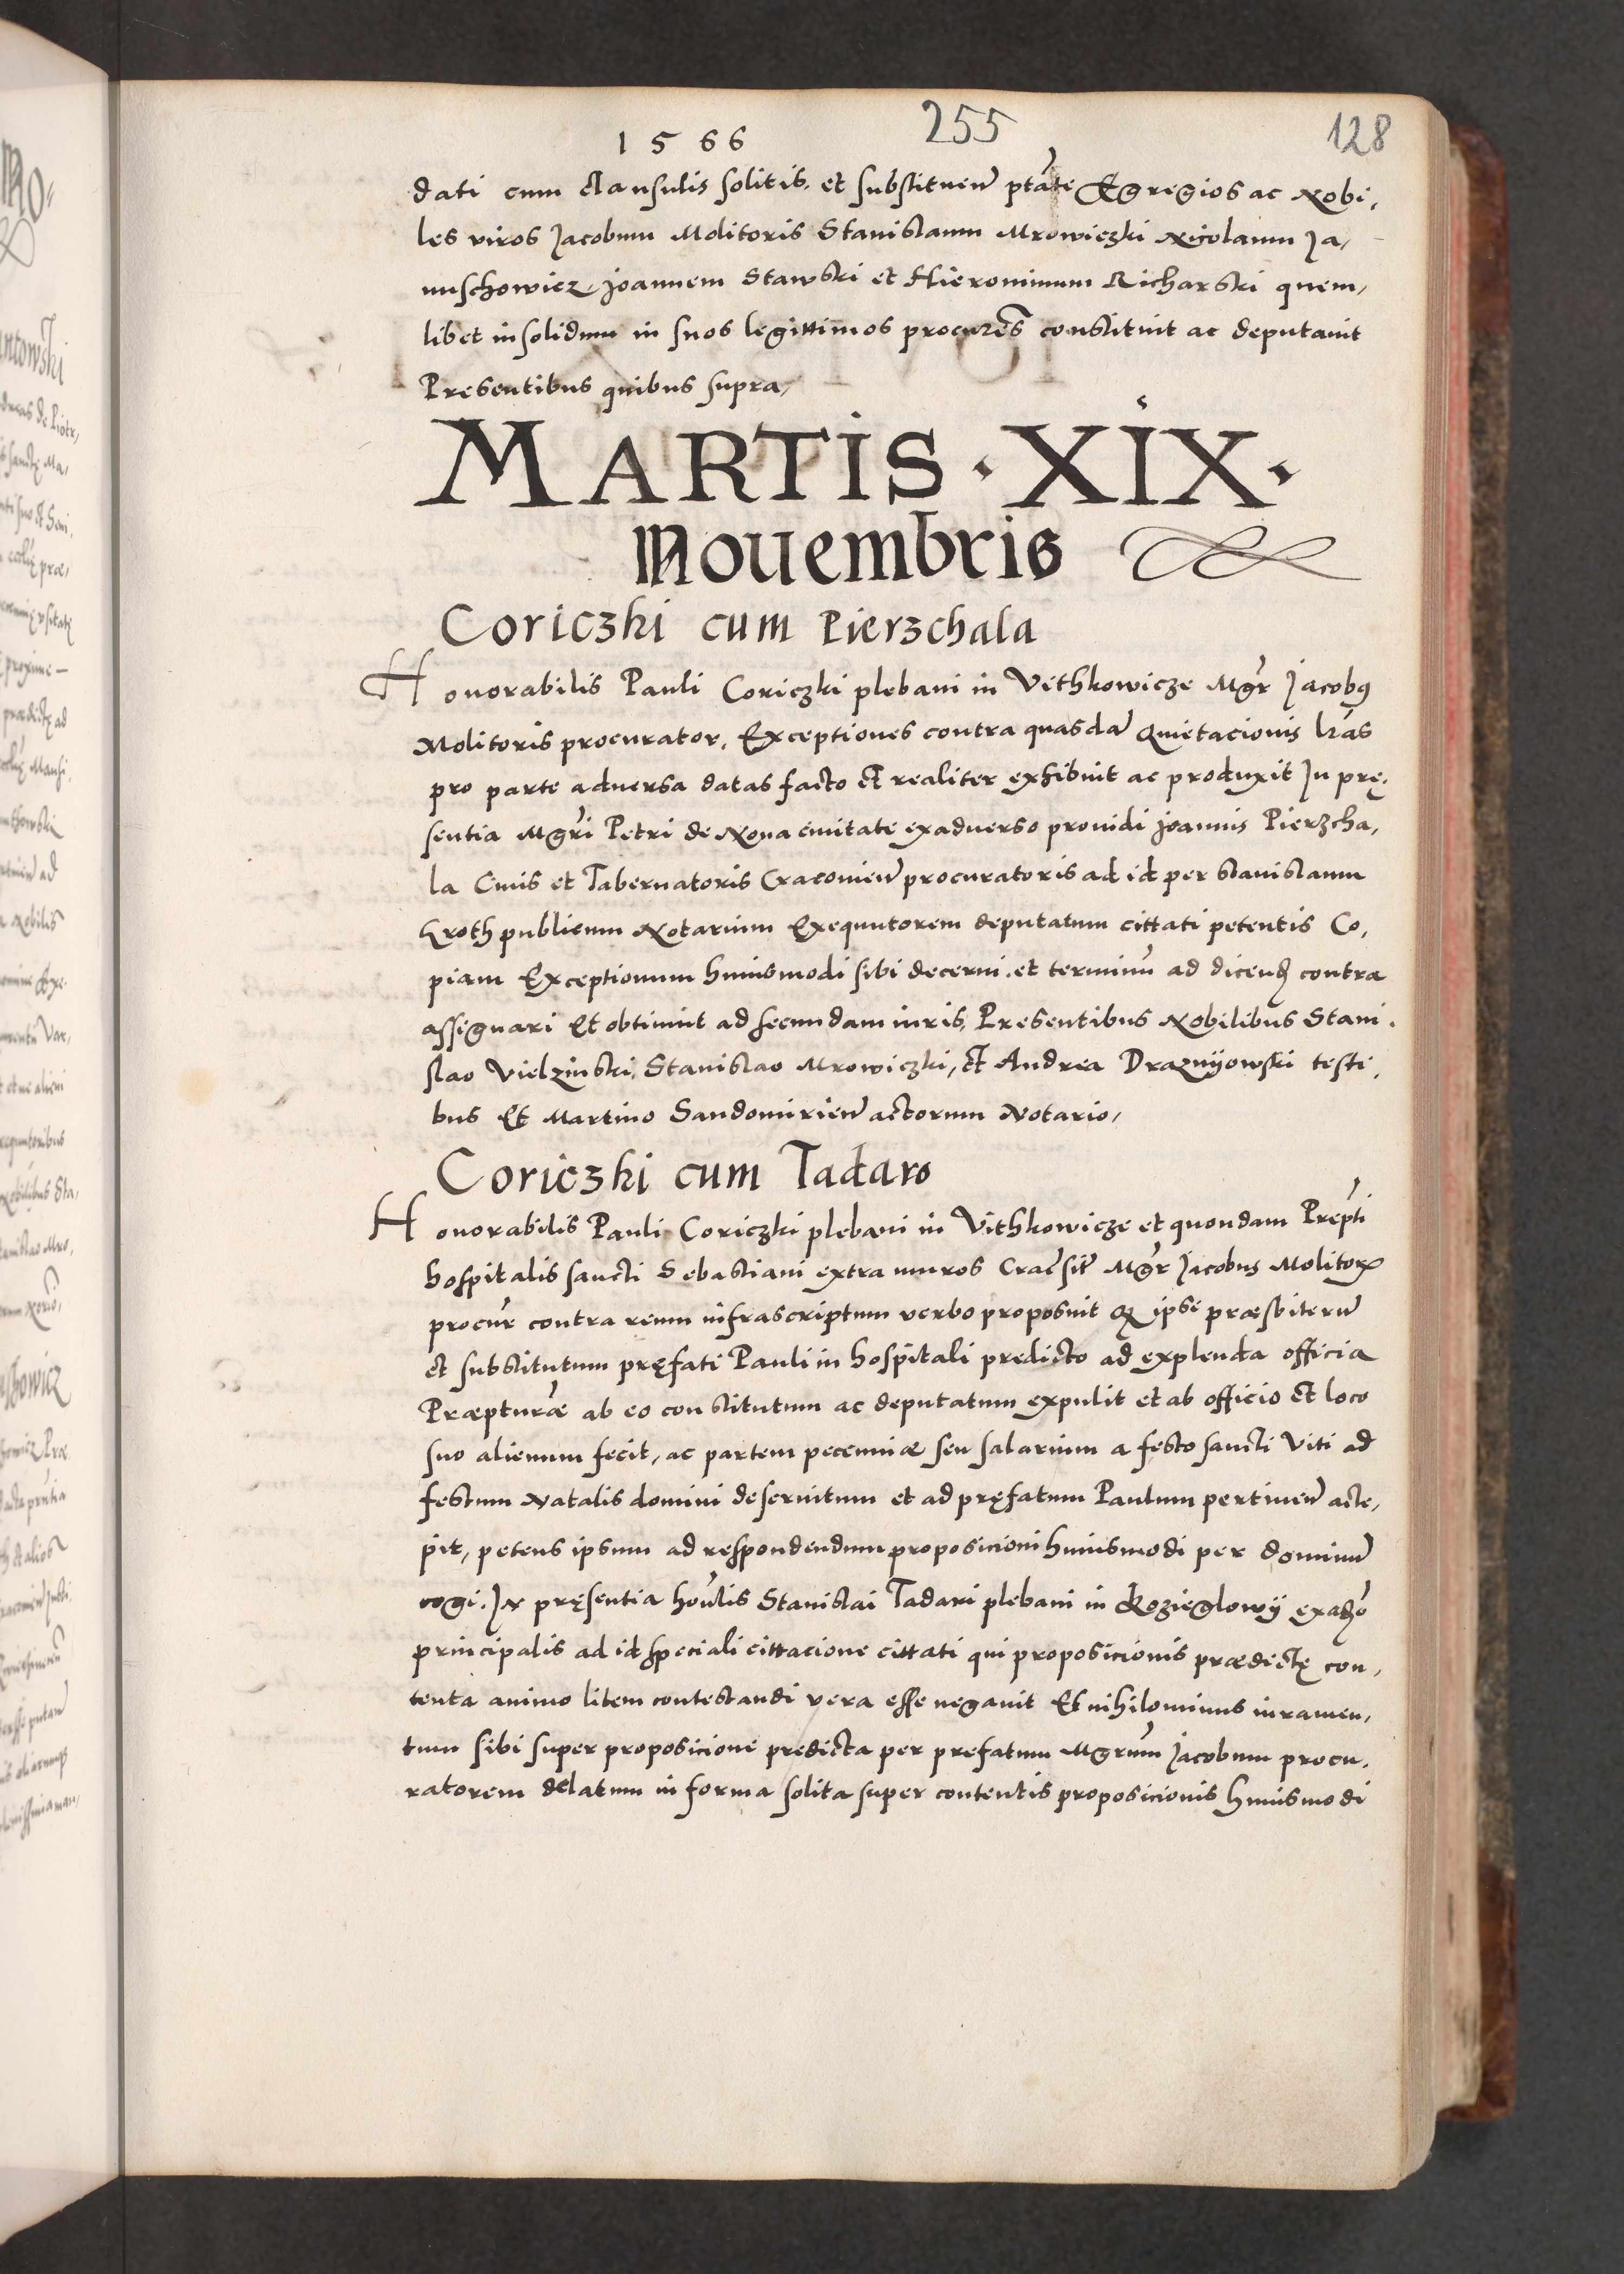 1566 255 128
dati cum clausulis solitis, et substituen̄ ptāte Egregios ac Nobi,
les viros Jacobum Molitoris Stanislaum Mrowiczki Nicolaum Ja,
nuschowicz Joannem Stawski et Hieronimum Richarski quem,
libet insolidum in suos legittimos procurēs constituit ac deputauit
Presentibus quibus supra,
MARTIS · XIX ·
Nouembris
Coriczki cum Pierzchala
Honorabilis Pauli Coriczki plebani in Vithkowicze Mgr̄ Jacobꝰ
Molitoris procurator, Exceptiones contra quasdā Quietacionis lr̄as
pro parte aduersa datas facto et realiter exhibuit ac produxit In prę,
sentia Mgr̄i Petri de Noua ciuitate exaduerso prouidi Joannis Pierzcha,
la Ciuis et Tabernatoris Cracouien̄ procuratoris ad id per Stanislaum
Groth publicum Notarium Exequutorem deputatum cittati petentis Co,
piam Exceptionum huiusmodi sibi decerni et terminū ad dicend contra
assignari Et obtinuit ad secundam iuris, Presentibus Nobilibus Stani,
slao Vielzinski, Stanislao Mrowiczki, et Andrea Draznÿowski testi,
bus Et Martino Sandomirien̄ actorum Notario,
Coriczki cum Tadaro
Honorabilis Pauli Coriczki plebani in Vithkowicze et quondam Prep̄ti
hospitalis sancti Sebastiani extra muros Crac̄ sit̄ Mgr̄ Jacobus Molitor
procur̄ contra reum infrascriptum verbo proposuit Q ipse præsbiterū
et substitutum pręfati Pauli in hospitali predicto ad explenda officia
Præpturæ ab eo constitutum ac deputatum expulit et ab officio et loco
suo alienum fecit, ac partem pecuniæ seu salarium a festo sancti Viti ad
festum Natalis domini deseruitum et ad pręfatum Paulum pertinen̄ acce,
pit, petens ipsum ad respondendum proposicioni huiusmodi per dominū
cogi. In pręsentia hon̄lis Stanislai Tadari plebani in Kozieglowÿ
principalis ad id speciali cittacione cittati qui proposicionis prædictę con,
tenta animo litem contestandi vera esse negauit Et nihilominus iuramen,
tum sibi super proposicione predicta per prefatum Mgrum̄ Jacobum procu,
ratorem delatum in forma solita super contentis proposicionis huiusmodi